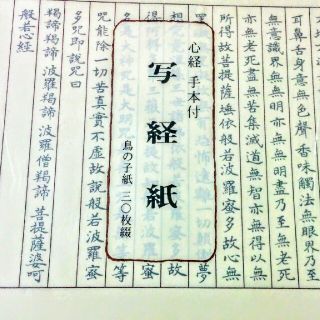 耳鼻舌身意無色聲香味觸法無眼界乃至
無意識界無無明亦無無明盡乃至無老死
亦無老死盡無苦集滅道無智亦無得以無
所得故菩提薩埵依般若波羅蜜多故心無
夢
心経 手本付
写経紙
鳥の子紙 二〇枚綴
咒能除一切苦真實不虚故説般若波羅蜜
多咒即説咒曰
羯諦羯諦 波羅羯諦 波羅僧羯諦 菩提薩婆呵
般若心經